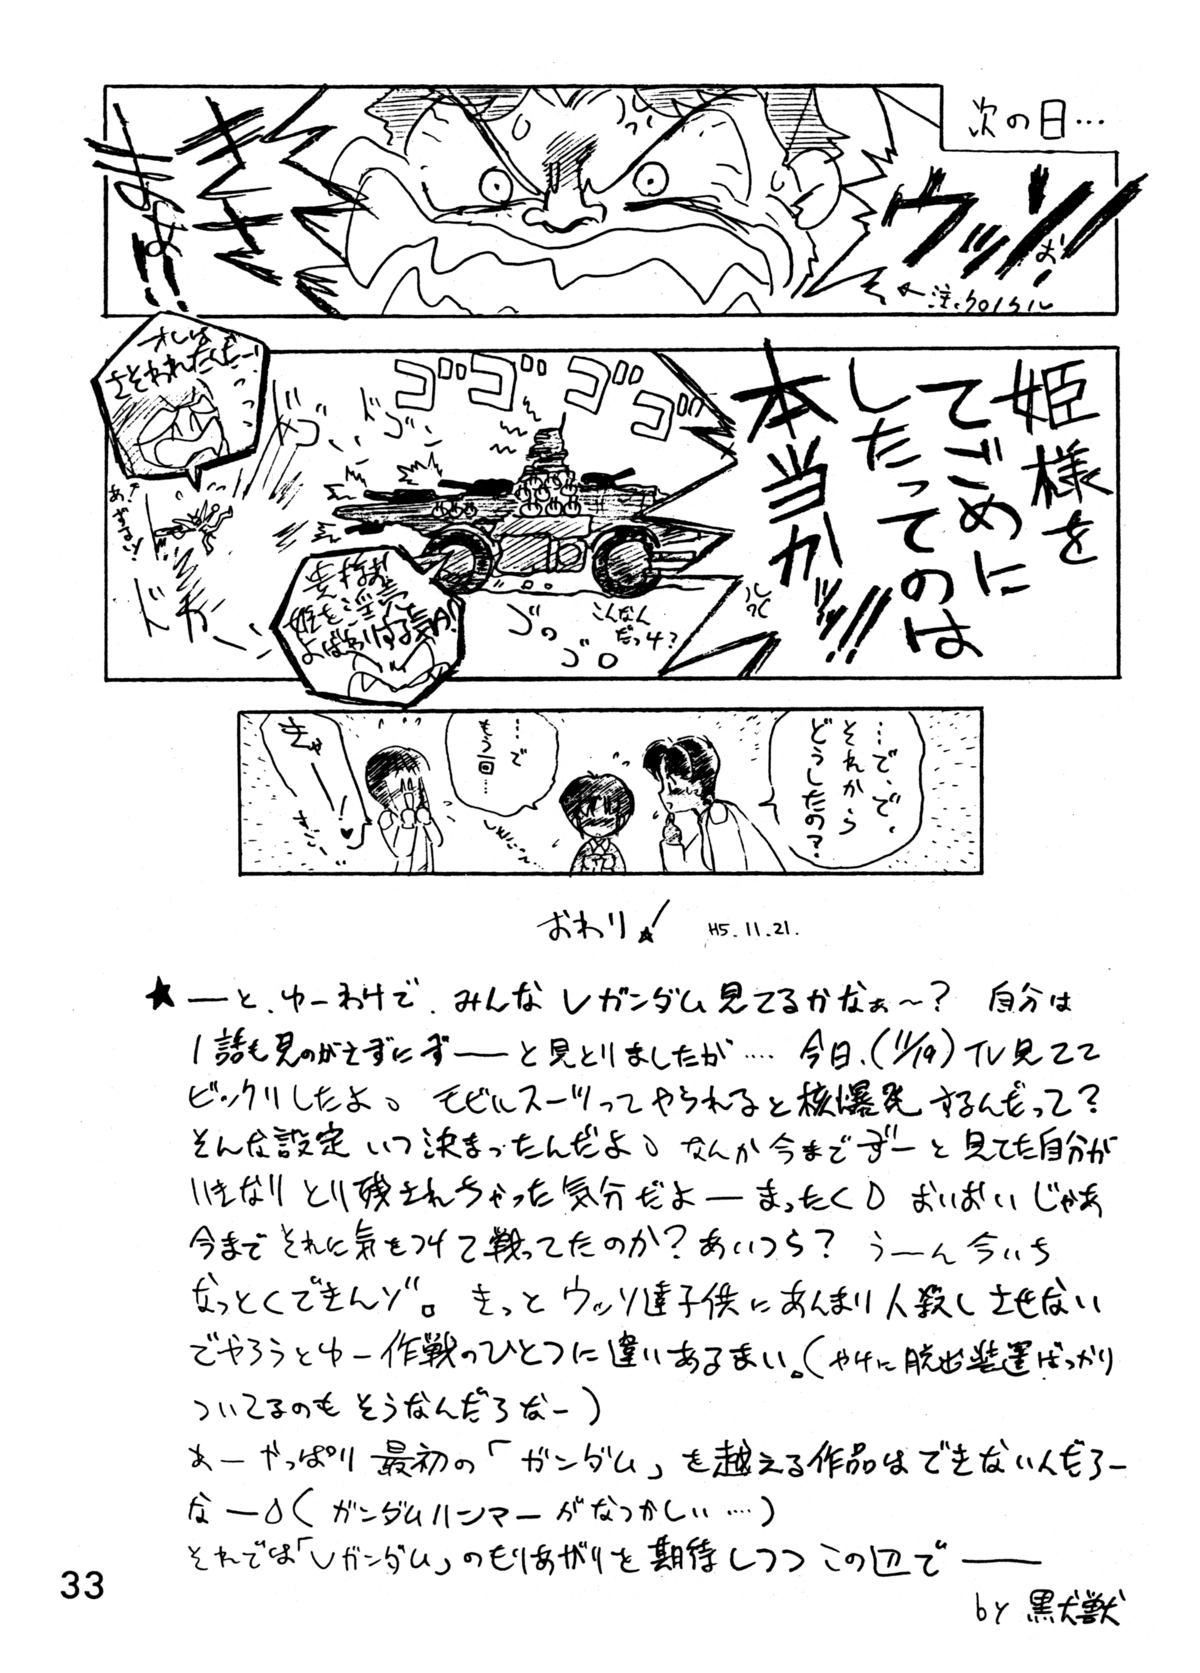 次の日…
ウッソ
お!
きさまぁ!!
注.クロノクル
姫様を
てごめに
したってのは
本当かッ!!
ゴゴゴゴ
オレは
さそわれたんだー!
ドゴッ
ドゴッ
ドカッ
ゴゴゴ
こんなん
だっけ?
…で、で、
それから
どうしたの?
…で
もう一回…
きゃーー!♥
おわり!
H5.11.21.
★ ーーと、ゆーわけで、みんなVガンダム見てるかなぁ〜? 自分は
1話も見のがさずにずーーっと見とりましたが‥‥ 今日、(11/19) TV見てて
ビックリしたよ。 モビルスーツってやられると核爆発するんだって?
そんな設定いつ決まったんだよ。なんか今までずーっと見てた自分が
いきなりとり残されちゃった気分だよーまったく。おいおいじゃあ
今までそれに気をつけて戦ってたのか?あいつら? うーーん今いち
なっとくできんゾ。 きっとウッソ達子供にあんまり人殺しさせない
でやろうとゆー作戦のひとつに違いあるまい。(やけに脱出装置ばっかり
ついてるのもそうなんだろなー)
あーやっぱり最初の「ガンダム」を越える作品はできないんだろー
なー。(ガンダムハンマーがなつかしい‥‥)
それでは「Vガンダム」のもりあがりを期待しつつこの辺でーーー
by 黒犬獣
33